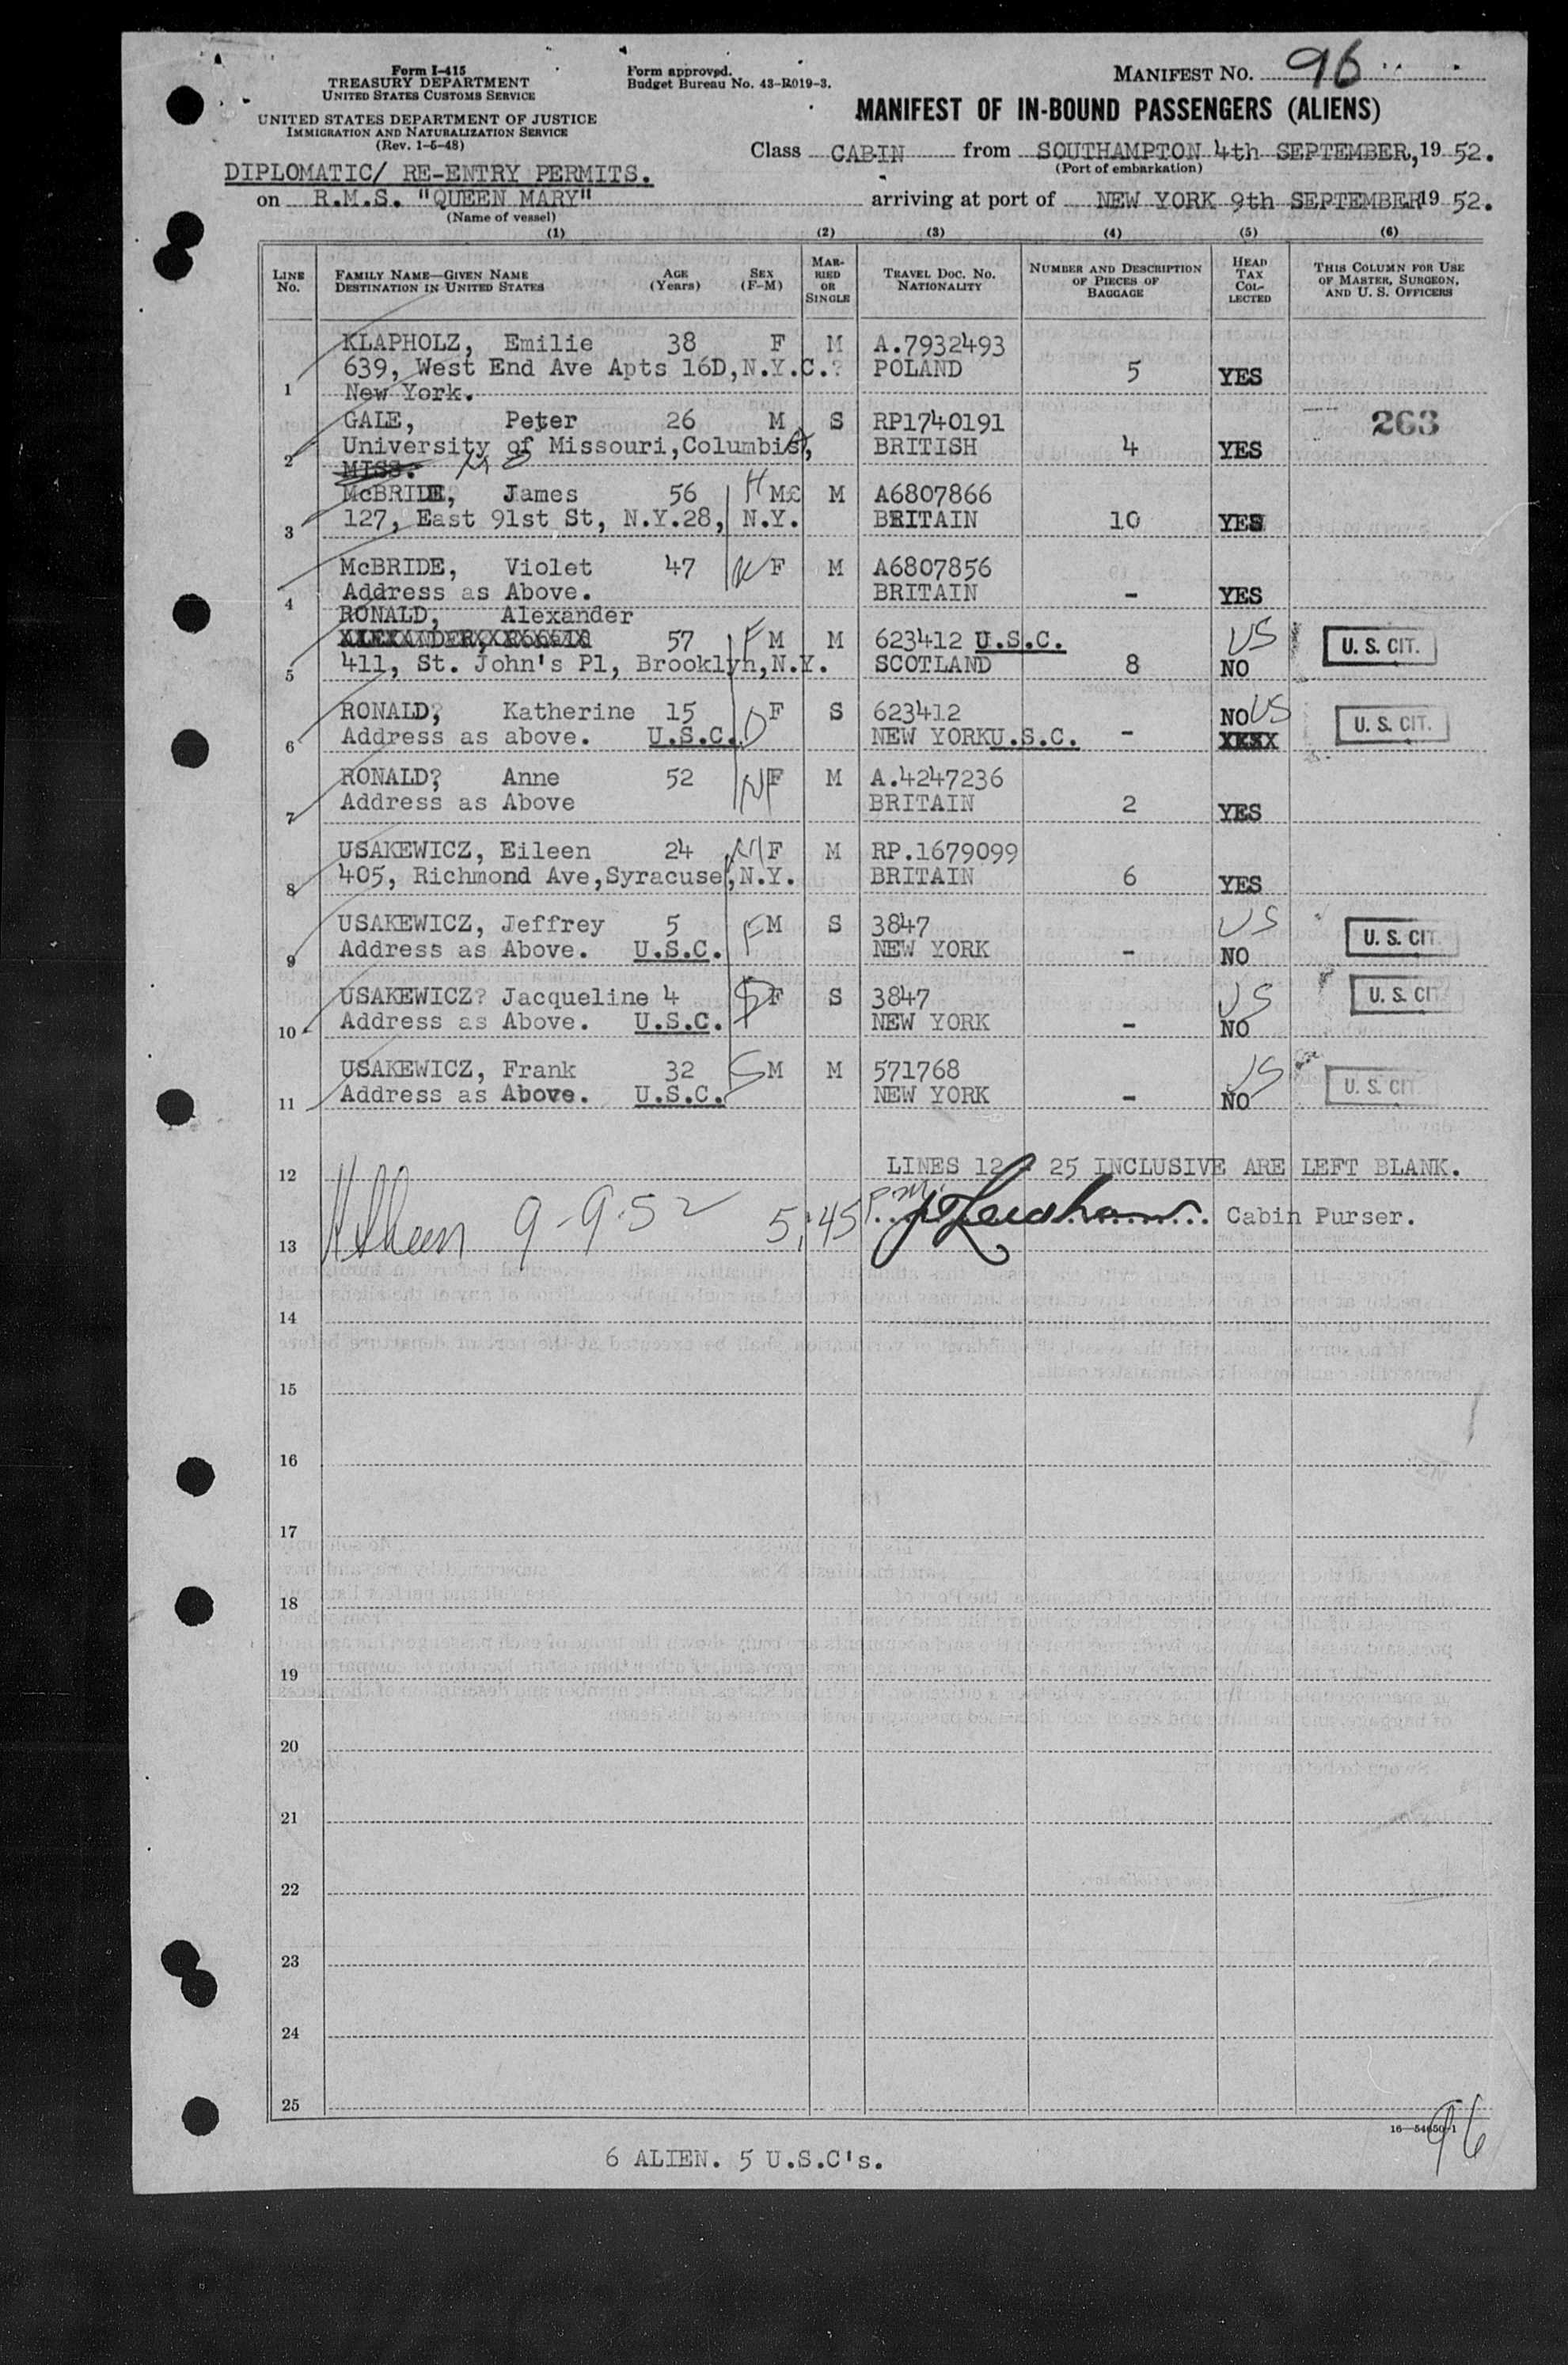 Form I-415
TREASURY DEPARTMENT
UNITED STATES CUSTOMS SERVICE
UNITED STATES DEPARTMENT OF JUSTICE
IMMIGRATION AND NATURALIZATION SERVICE
(Rev. 1-5-48)
Form approved.
Budget Bureau No. 43-R019-3.
MANIFEST NO. 96
MANIFEST OF IN-BOUND PASSENGERS (ALIENS)
Class CABIN from SOUTHAMPTON 4th SEPTEMBER, 1952.
(Port of embarkation)
DIPLOMATIC/ RE-ENTRY PERMITS.
on R.M.S. "QUEEN MARY" arriving at port of NEW YORK 9th SEPTEMBER 1952.
(Name of vessel)
(1) (2) (3) (4) (5) (6)
LINE No. FAMILY NAME—GIVEN NAME DESTINATION IN UNITED STATES AGE (Years) SEX (F-M) MARRIED OR SINGLE TRAVEL DOC. NO. NATIONALITY NUMBER AND DESCRIPTION OF PIECES OF BAGGAGE HEAD TAX COLLECTED THIS COLUMN FOR USE OF MASTER, SURGEON, AND U. S. OFFICERS
KLAPHOLZ, Emilie 38 F M A.7932493
639, West End Ave Apts 16D, N.Y.C.? POLAND 5 YES
1 New York.
GALE, Peter 26 M S RP1740191 263
2 University of Missouri, Columbia, BRITISH 4 YES
MISS. Mo
McBRIDE, James 56 H M M A6807866
3 127, East 91st St, N.Y.28, N.Y. BRITAIN 10 YES
McBRIDE, Violet 47 W F M A6807856
4 Address as Above. BRITAIN - YES
RONALD, Alexander
57 F M M 623412 U.S.C. US U. S. CIT.
5 411, St. John's Pl, Brooklyn, N.Y. SCOTLAND 8 NO
RONALD, Katherine 15 D F S 623412 NO US U. S. CIT.
6 Address as above. U.S.C. NEW YORK U.S.C. - XXXX
RONALD? Anne 52 M F M A.4247236
7 Address as Above BRITAIN 2 YES
USAKEWICZ, Eileen 24 M F M RP.1679099
8 405, Richmond Ave, Syracuse, N.Y. BRITAIN 6 YES
USAKEWICZ, Jeffrey 5 F M S 3847 US U. S. CIT.
9 Address as Above. U.S.C. NEW YORK - NO
USAKEWICZ? Jacqueline 4 F S 3847 US U. S. CI
10 Address as Above. U.S.C. NEW YORK - NO
USAKEWICZ, Frank 32 S M M 571768 US U. S. CIT.
11 Address as Above. U.S.C. NEW YORK - NO
12 LINES 12 - 25 INCLUSIVE ARE LEFT BLANK.
13 9-9-52 5:45 pm Cabin Purser.
14
15
16
17
18
19
20
21
22
23
24
25
16—54650-1
96
6 ALIEN. 5 U.S.C's.